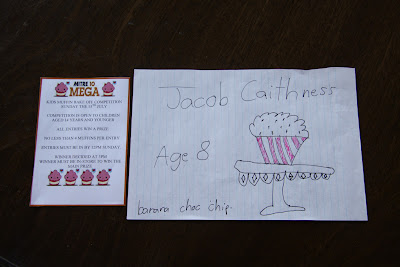 MITRE 10
MEGA
KIDS MUFFIN BAKE OFF COMPETITION
SUNDAY THE 15TH JULY
COMPETITION IS OPEN TO CHILDREN
AGED 14 YEARS AND YOUNGER
ALL ENTRIES WIN A PRIZE
NO LESS THAN 6 MUFFINS PER ENTRY
ENTRIES MUST BE IN BY 12PM SUNDAY
WINNER DECIDED AT 2PM
WINNER MUST BE IN STORE TO WIN THE
MAIN PRIZE
Jacob Caithness
Age 8
banana choc chip.